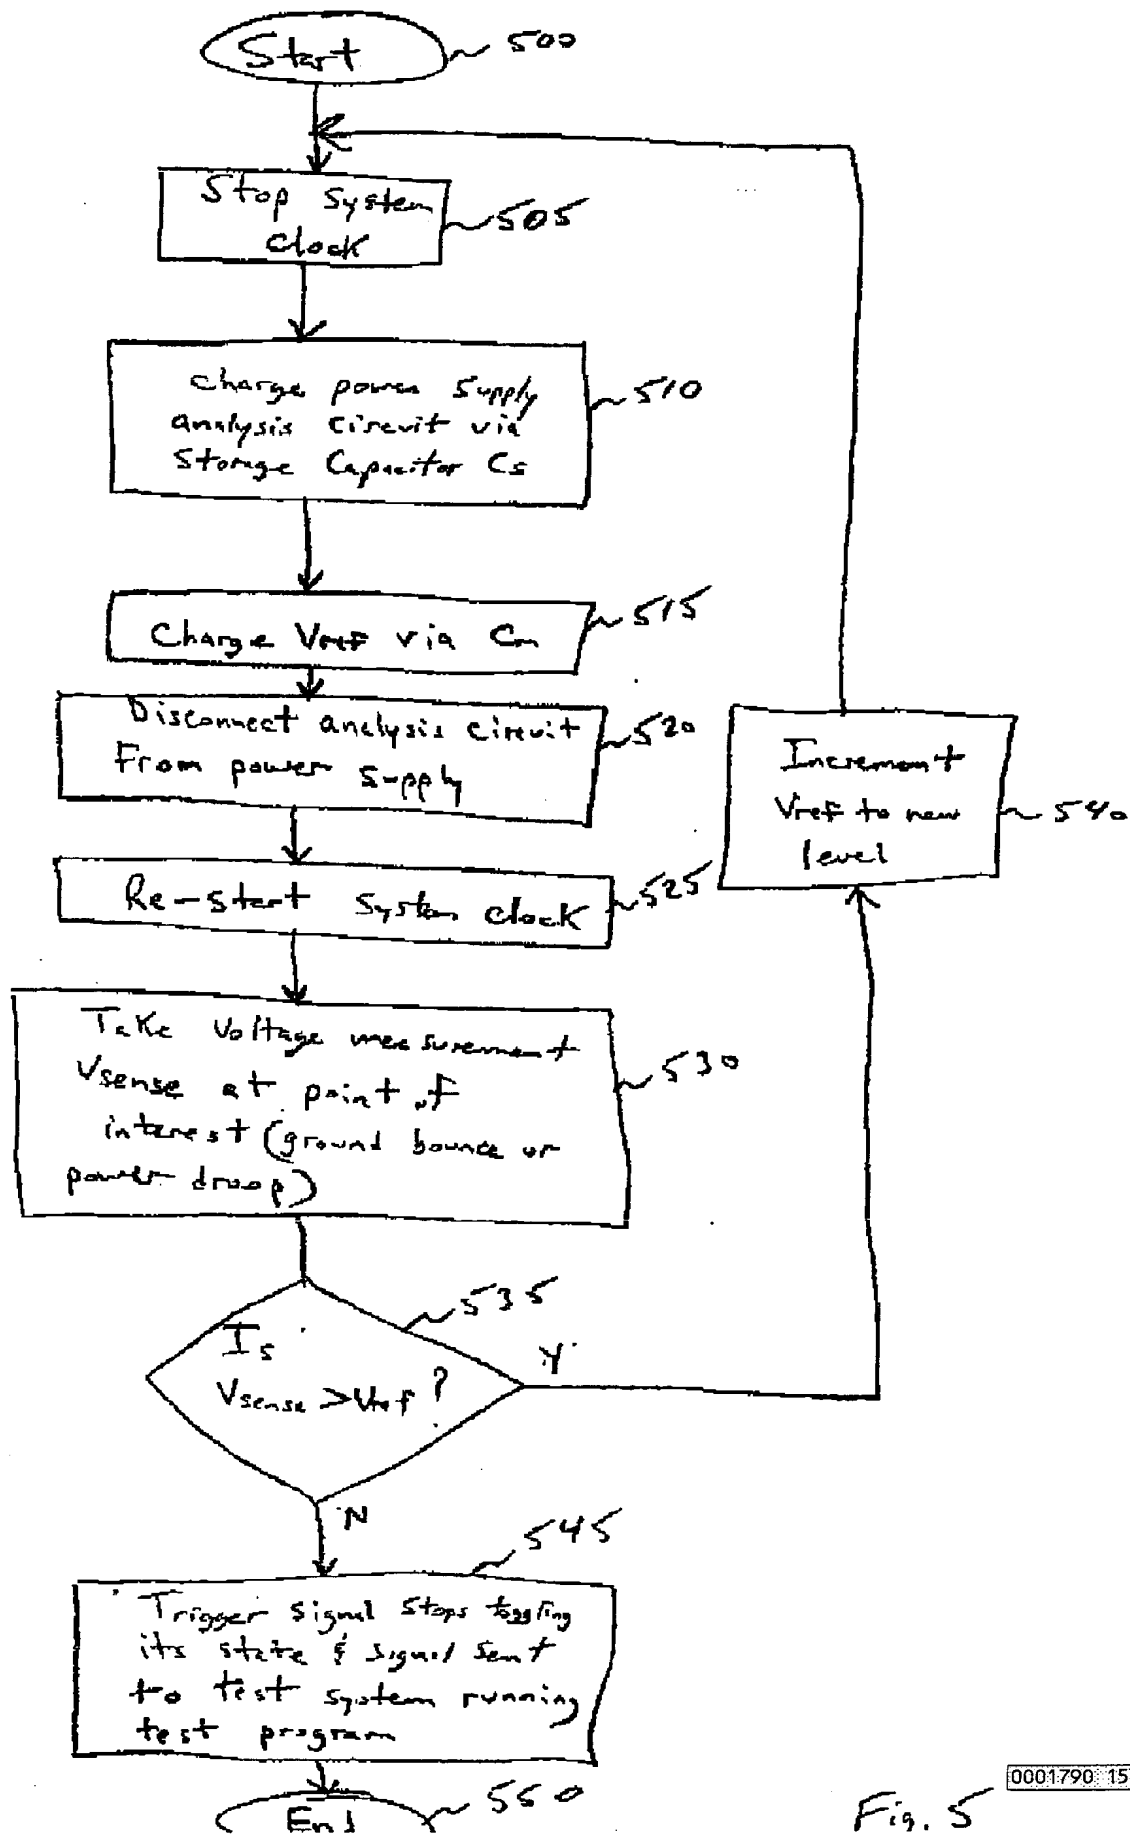 Start
500
Stop System
Clock
505
Charge power Supply
analysis circuit via
Storage Capacitor Cs
510
Charge Vref via Cm
515
Disconnect analysis circuit
From power supply
520
Increment
Vref to new
level
540
Re-start system clock
525
Take Voltage measurement
Vsense at point of
interest (ground bounce or
power droop)
530
535
Is
Vsense > Vref?
Y
N
545
Trigger signal stops toggling
its state & signal sent
to test system running
test program
End
550
Fig. 5
0001790 15